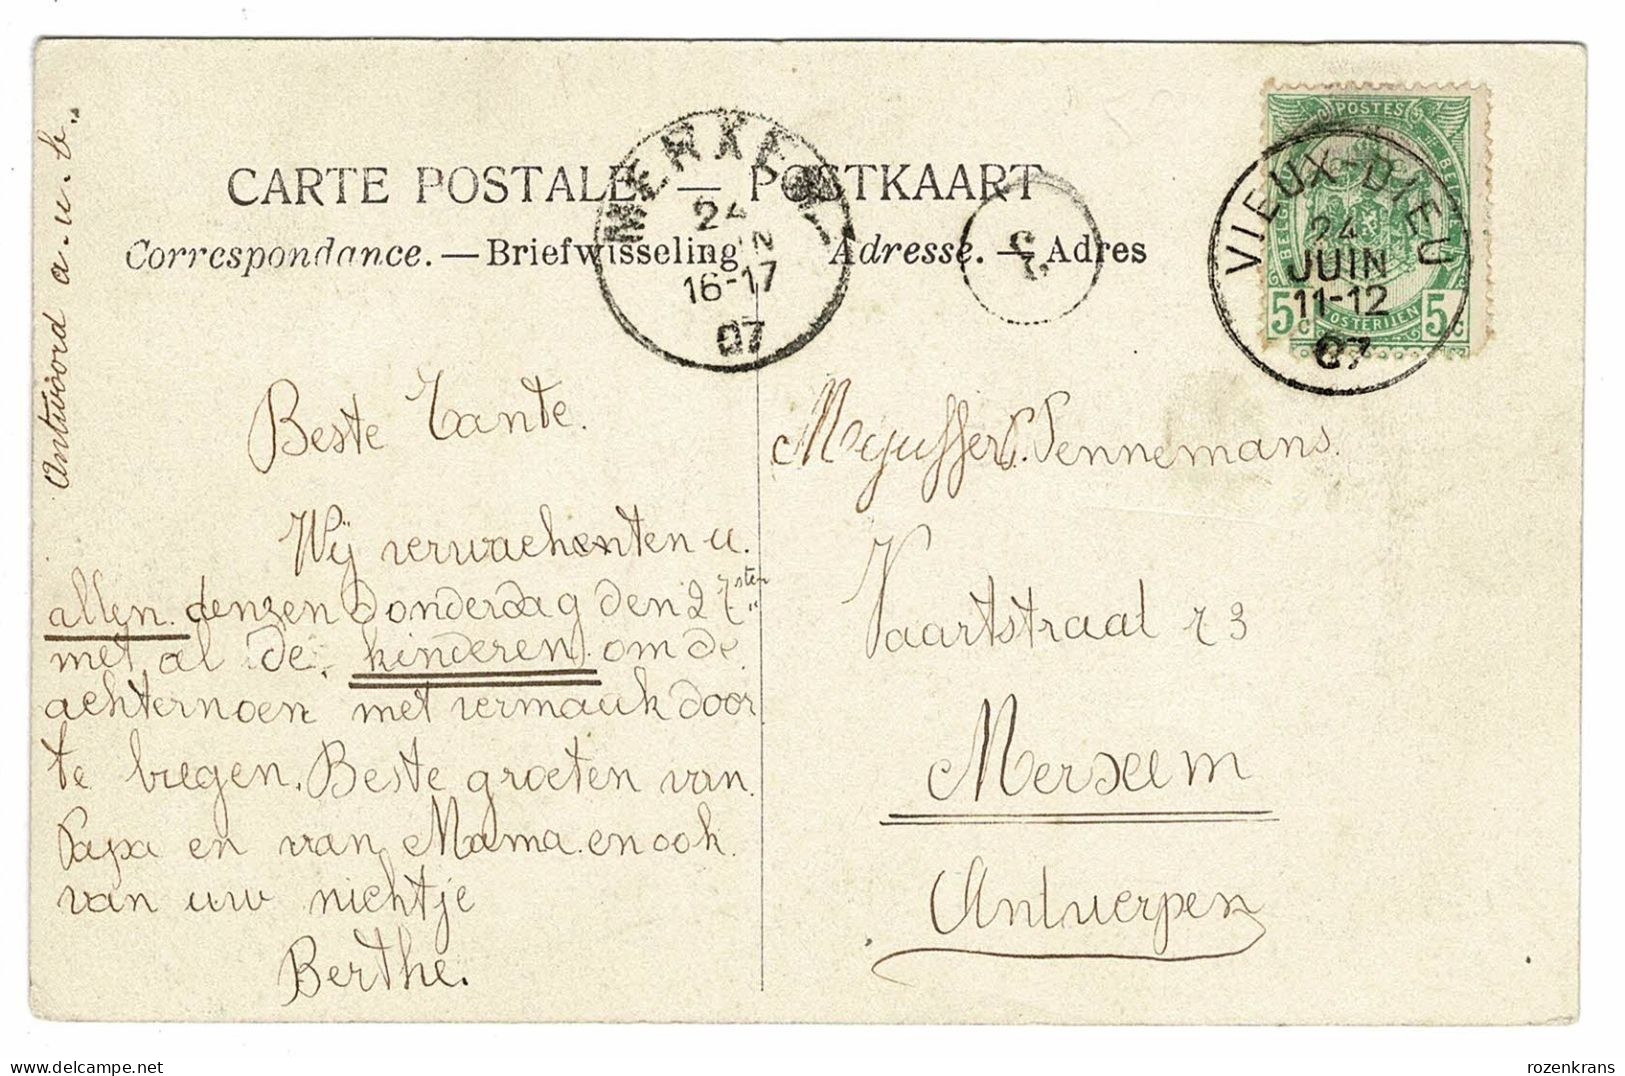 CARTE POSTALE — POSTKAART
Correspondance. — Briefwisseling
Adresse. — Adres
MERXEM
24
16-17
07
VIEUX-DIEU
24
JUIN
11-12
07
POSTES
BELGIQUE
BELGIE
5c
POSTERIJEN
5c
Antwoord a.u.b.
Beste Tante.
Wij verwachenten u.
allen. denzen Donderdag den 27sten
met al de kinderen. om de
achternoen met vermaak door
te bregen. Beste groeten van
Papa en van Mama. en ook
van uw nichtje
Berthe.
Mejuffer Pennemans.
Vaartstraat 73
Merxem
Antwerpen
rozenkrans